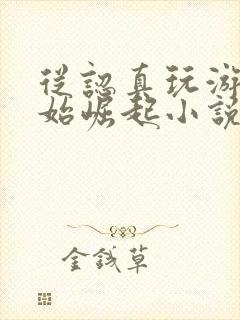 從認真玩游
始崛起小說
金錢草